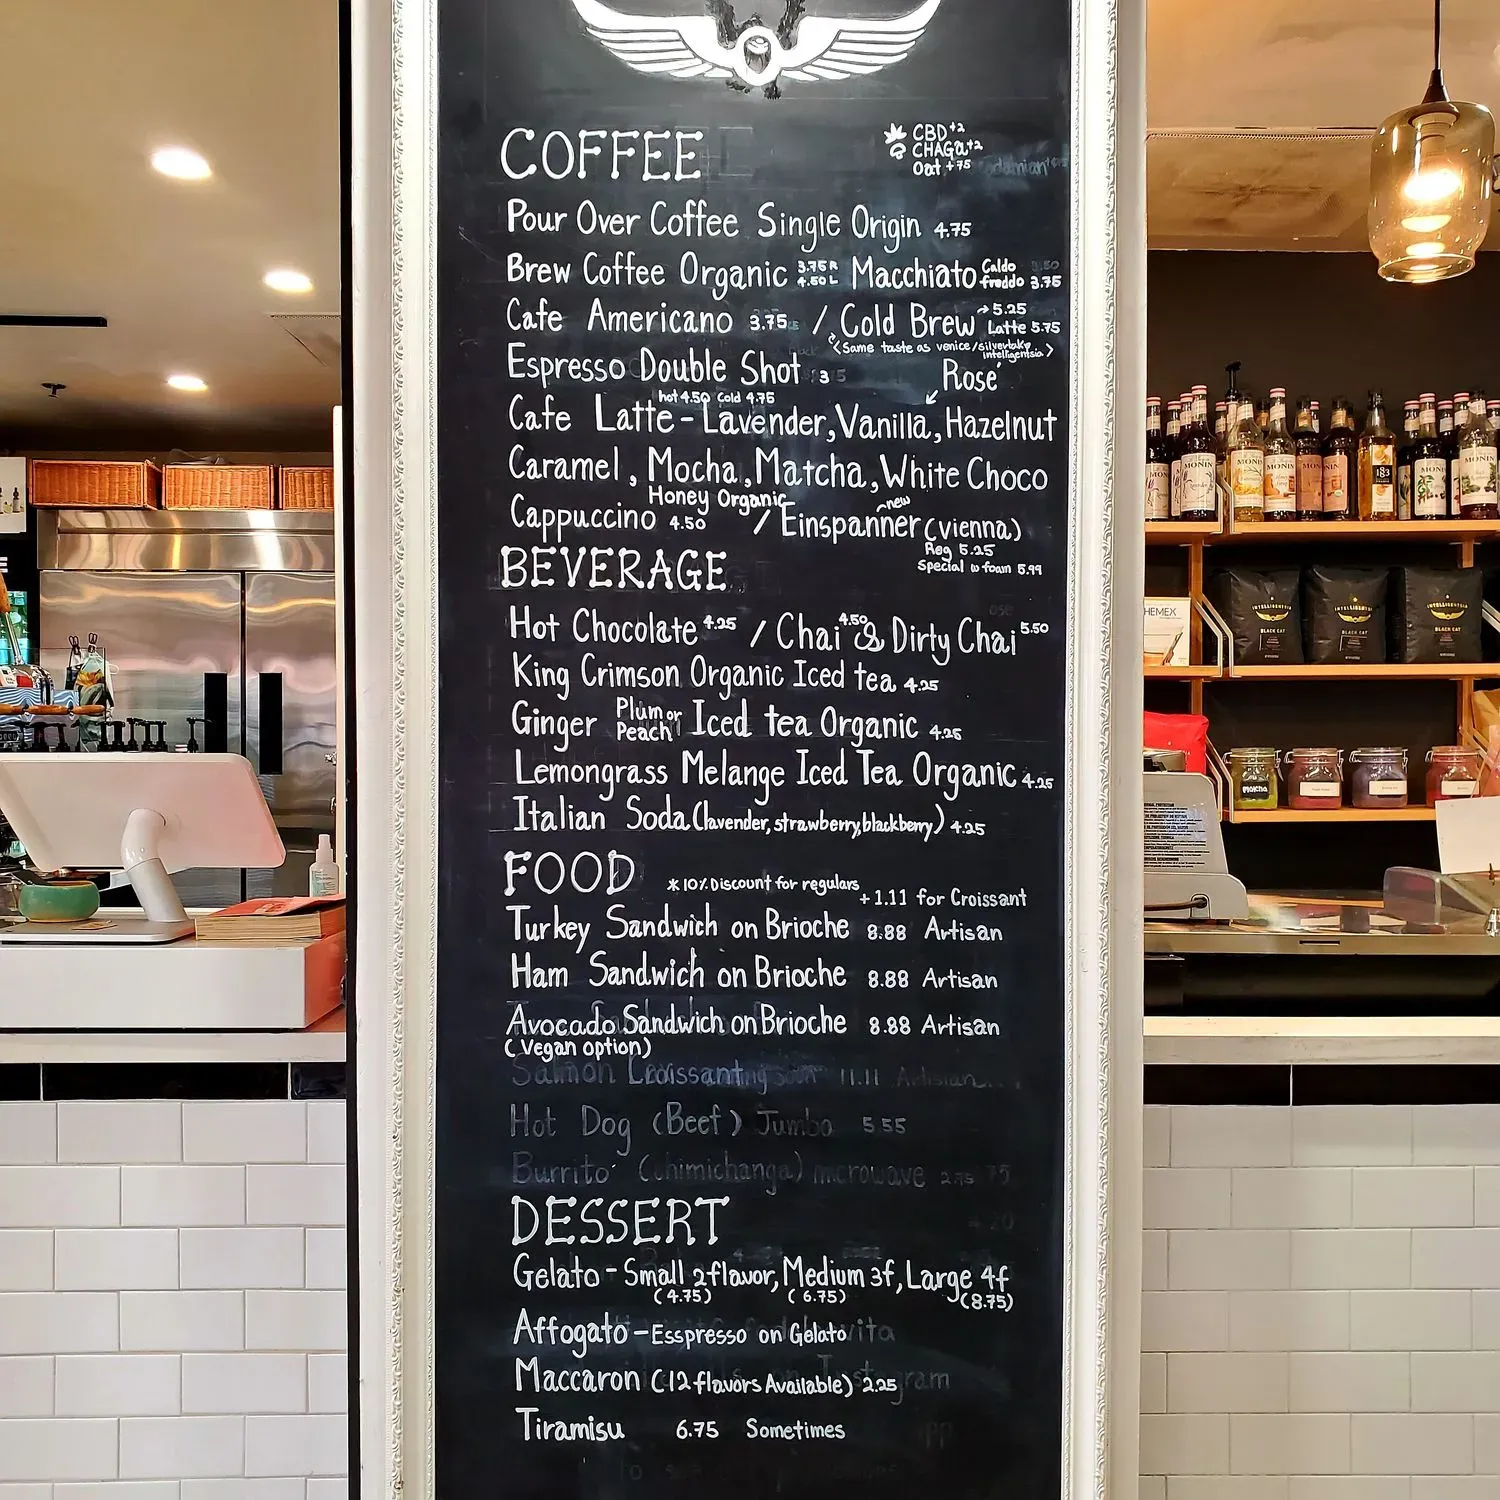 COFFEE
CBD +2
CHAGa +2
Oat +75
Pour Over Coffee Single Origin 4.75
Brew Coffee Organic 3.75R 4.50L Macchiato Caldo freddo 3.75
Cafe Americano 3.75 / Cold Brew → 5.25 Latte 5.75
(Same taste as venice/silverlake intelligentsia)
Espresso Double Shot 3
Rosé
hot 4.50 Cold 4.75
Cafe Latte - Lavender, Vanilla, Hazelnut
Caramel, Mocha, Matcha, White Choco
Honey Organic
Cappuccino 4.50 / Einspanner (vienna) new
Reg 5.25
Special w foam 5.99
BEVERAGE
Hot Chocolate 4.25 / Chai 4.50 & Dirty Chai 5.50
King Crimson Organic Iced tea 4.25
Ginger Plum or Peach Iced tea Organic 4.25
Lemongrass Melange Iced Tea Organic 4.25
Italian Soda (lavender, strawberry, blackberry) 4.25
FOOD
* 10% Discount for regulars
+1.11 for Croissant
Turkey Sandwich on Brioche 8.88 Artisan
Ham Sandwich on Brioche 8.88 Artisan
Avocado Sandwich on Brioche 8.88 Artisan
(Vegan option)
Salmon Croissant 11.11 Artisan
Hot Dog (Beef) Jumbo 5.55
Burrito (chimichanga) microwave
DESSERT
Gelato - Small 2flavor, Medium 3f, Large 4f
(4.75) (6.75) (8.75)
Affogato - Esspresso on Gelato
Maccaron (12 flavors Available) 2.25
Tiramisu 6.75 Sometimes
MONIN
MONIN
MONIN
MONIN
1883
MONIN
MONIN
HEMEX
INTELLIGENTSIA
BLACK CAT
INTELLIGENTSIA
BLACK CAT
INTELLIGENTSIA
BLACK CAT
Matcha